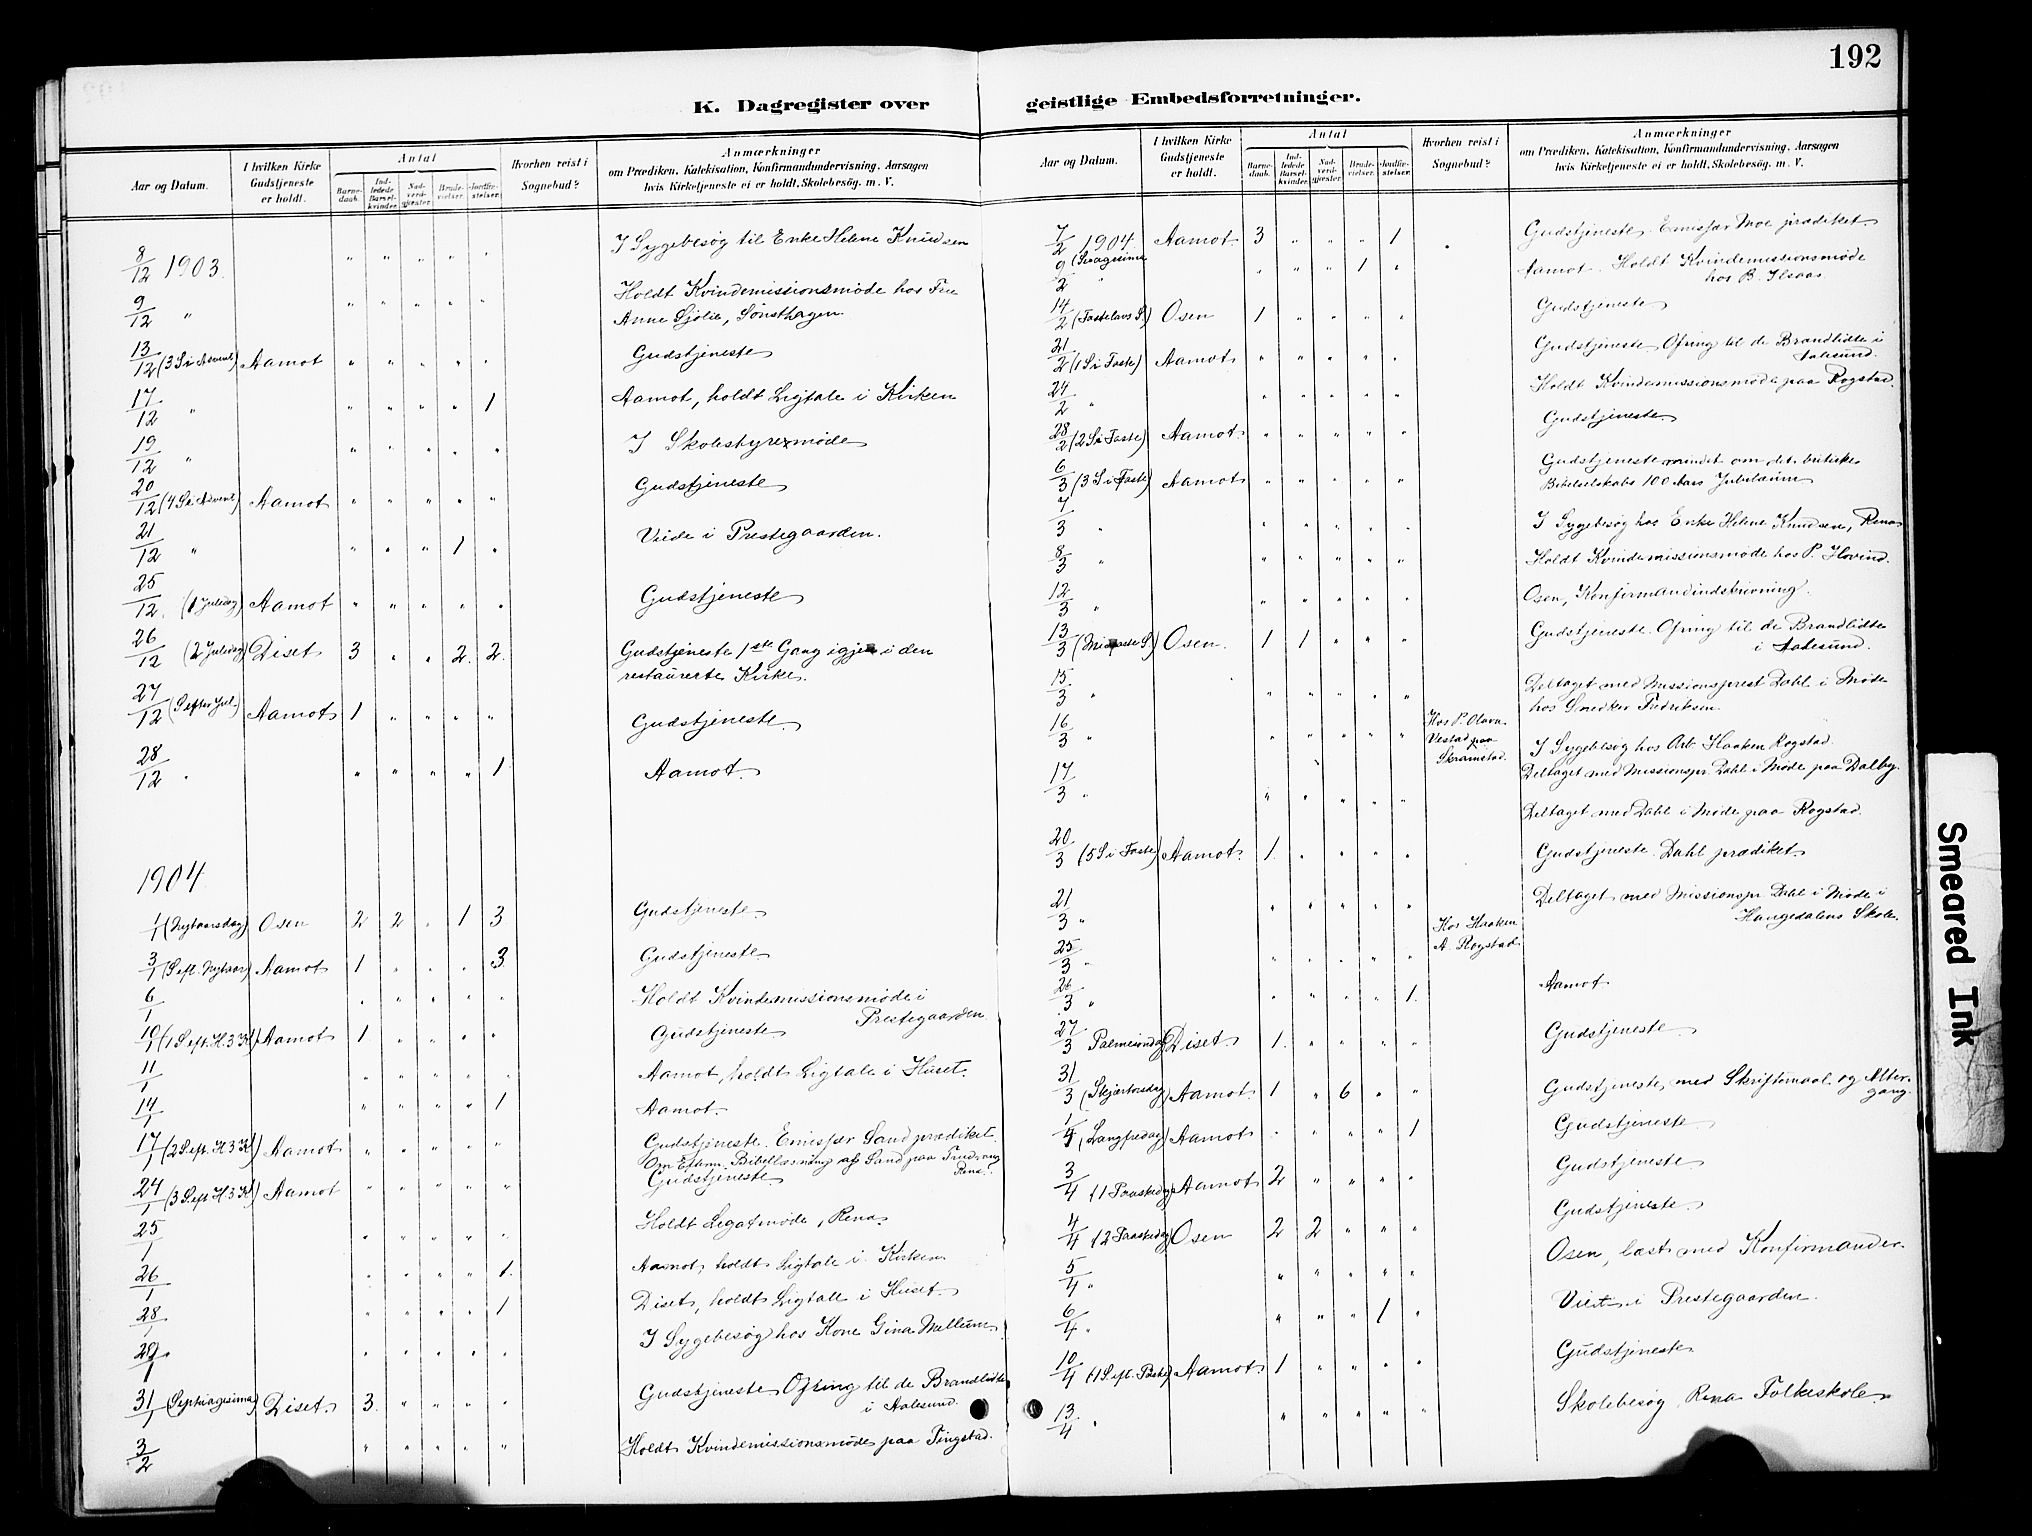 192
K. Dagregister over geistlige Embedsforretninger.
Aar og Datum. | I hvilken Kirke Gudstjeneste er holdt. | Antal | Barne-daab. | Ind-ledede Barsel-kvinder. | Nad-verd-gjester. | Brude-vielser. | Jordfæ-stelser. | Hvorhen reist i Sognebud? | Anmærkninger om Prædiken, Katekisation, Konfirmandundervisning, Aarsagen hvis Kirketjeneste ei er holdt, Skolebesög. m. V.
8/12 1903. " " " " " I Sygebesøg til Enke Helene Knudsen
9/12 " " " " " " Holdt Kvindemissionsmøde hos Fru
Anne Sjølie, Sønsthagen
13/12 (3 S i Advent) Aamot " " " " " Gudstjeneste
17/12 " " " " " 1 Aamot, holdt Ligtale i Kirken
19/12 " " " " " " I Skolestyremøde
20/12 (4 S i Advent) Aamot " " " " " Gudstjeneste
21/12 " " " " 1 " Viede i Prestegaarden.
25/12 (1 Juledag) Aamot " " " " " Gudstjeneste
26/12 (2 Juledag) Diset 3 " " 2. 2. Gudstjeneste 1ste Gang igjen i den
restaurerte Kirke.
27/12 (S efter Jul) Aamot 1 " " " " Gudstjeneste
28/12 " " " " " 1. Aamot.
1904
1/1 (Nytaarsdag) Osen 2 2 " 1 3 Gudstjeneste
3/1 (S eft. Nytaar) Aamot 1 " " " 3 Gudstjeneste
6/1 " " " " " Holdt Kvindemissionsmøde i
Prestegaarden.
10/1 (1 S eft. H. 3 K) Aamot 1 " " " " Gudstjeneste
11/1 " " " " " Aamot, holdt Ligtale i Huset.
14/1 " " " " 1 Aamot.
17/1 (2 S eft. H 3 K) Aamot " " " " " Gudstjeneste. Emissær Sand prædiket.
Om Bibellæsning af Sand paa
Rena.
24/1 (3 S eft H 3 K) Aamot " " " " " Gudstjeneste
25/1 " " " " " Holdt Legatmøde, Rena
26/1 " " " " 1. Aamot, holdt Ligtale i Kirken
28/1 " " " " 1 Diset, holdt Ligtale i Huset.
29/1 " " " " " I Sygebesøg hos Kone Gina Mellum
31/1 (Septuagesima) Diset 3. " " " " Gudstjeneste Ofring til de Brandlidte
i Aalesund.
3/2 " " " " " Holdt Kvindemissionsmøde paa Tingstad.
Aar og Datum. | I hvilken Kirke Gudstjeneste er holdt. | Antal | Barne-daab. | Ind-ledede Barsel-kvinder. | Nad-verd-gjester. | Brude-vielser. | Jordfæ-stelser. | Hvorhen reist i Sognebud? | Anmærkninger om Prædiken, Katekisation, Konfirmandundervisning, Aarsagen hvis Kirketjeneste ei er holdt, Skolebesög. m. V.
7/2 1904. Aamot 3 " " " 1 Gudstjeneste. Emissær Moe prædiket
(Sexagesima
9/2 " " " " 1 " Aamot. Holdt Kvindemissionsmøde
hos B. Ilsaas.
14/2 (Fastelavs S.) Osen 1 " " " " Gudstjeneste
21/2 (1 S i Faste) Aamot " " " " " Gudstjeneste Ofring til de Brandlidte i
Aalesund.
24/2 " " " " " " Holdt Kvindemissionsmøde paa Rogstad.
28/2 (2 S i Faste) Aamot " " " " " Gudstjeneste
6/3 (3 S i Faste) Aamot " " " " " Gudstjeneste mindet om det britiske
Bibelselskabs 100 Aars Jubilæum
7/3 " " " " " " I Sygebesøg hos Enke Helene Knudsen, Rena
8/3 " " " " " " Holdt Kvindemissionsmøde hos P. Hovind.
12/3 " " " " " " Osen, Konfirmandindskrivning.
13/3 (Midfaste S.) Osen. 1 1 " " " Gudstjeneste. Ofring til de Brandlidte
i Aalesund.
15/3 " " " " " " Deltaget med Missionsprest Dahl i Møde
hos Snedker Fredriksen.
16/3 " " " " " " Hos P. Olava Vestad paa Skramstad. I Sygebesøg hos Arb. Haaken Rogstad.
Deltaget med Missionspr. Dahl i Møde paa Dalby.
17/3 " " " " " " Deltaget med Dahl i Møde paa Rogstad.
20/3 (5 S i Faste) Aamot. 1. " " " " Gudstjeneste. Dahl prædiket
21/3 " " " " " " Deltaget med Missionspr. Dahl i Møde i
Haugedalens Skole.
25/3 " " " " " " Hos Haaken A. Rogstad
26/3 " " " " " 1. Aamot
27/3 Palmesøndag Diset 1. " " " " Gudstjeneste
31/3 (Skjærtorsdag) Aamot 1 " 6 " " Gudstjeneste, med Skriftemaal og Alter-
gang.
1/4 (Langfredag) Aamot " " " " 1 Gudstjeneste
3/4 (1 Paaskedag Aamot 2 " " " " Gudstjeneste
4/4 (2 Paaskedag Osen 2 2 " " " Gudstjeneste
5/4 " " " " " " Osen, læst med Konfirmander.
6/4 " " " " 1 " Viet i Prestegaarden.
10/4 (1 S eft. Paaske) Aamot 1 " " " " Gudstjeneste
13/4 " " " " " " Skolebesøg Rena Folkeskole
Smeared Ink